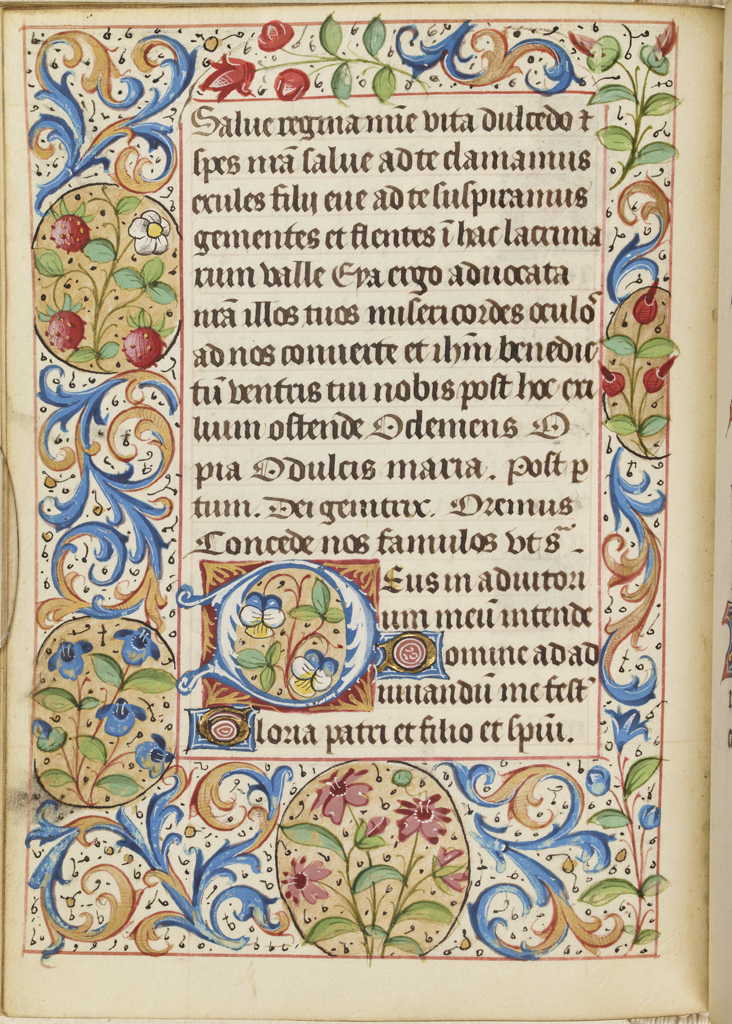 Salue regina mīe vita dulcedo ⁊
spes nrā salue ad te clamamus
exules filij eue ad te suspiramus
gementes et flentes ī hac lacrima
rum valle Eya ergo aduocata
nrā illos tuos misericordes oculoˢ
ad nos conuerte et ihm̄ benedic
tū ventris tui nobis post hoc exi
lium ostende O clemens O
pia O dulcis maria. Post p
tum. Dei genitrix. Oremus
Concede nos famulos vt sᷓ.
Deus in adiutori
um meū intende
Domine ad ad
iuuandū me festᷓ
Gloria patri et filio et spūi.